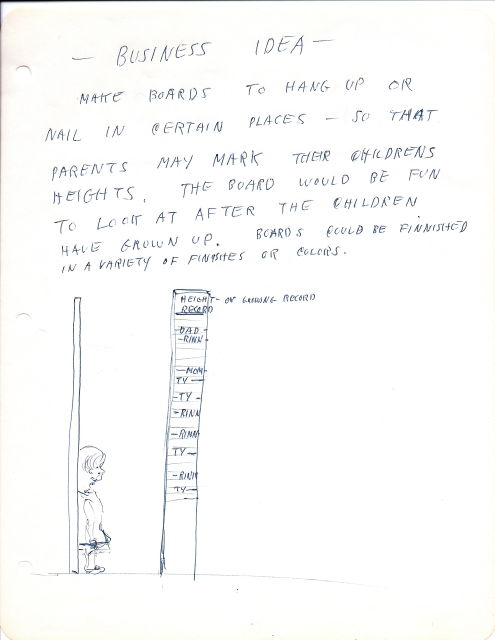 — BUSINESS IDEA —
MAKE BOARDS TO HANG UP OR
NAIL IN CERTAIN PLACES — SO THAT
PARENTS MAY MARK THEIR CHILDRENS
HEIGHTS. THE BOARD WOULD BE FUN
TO LOOK AT AFTER THE CHILDREN
HAVE GROWN UP. BOARDS COULD BE FINNISHED
IN A VARIETY OF FINISHES OR COLORS.
HEIGHT - OR GROWING RECORD
RECORD
- DAD -
- RINN
- MOM
TY -
- TY -
- RINN
- RINN
TY -
- RINN
TY -